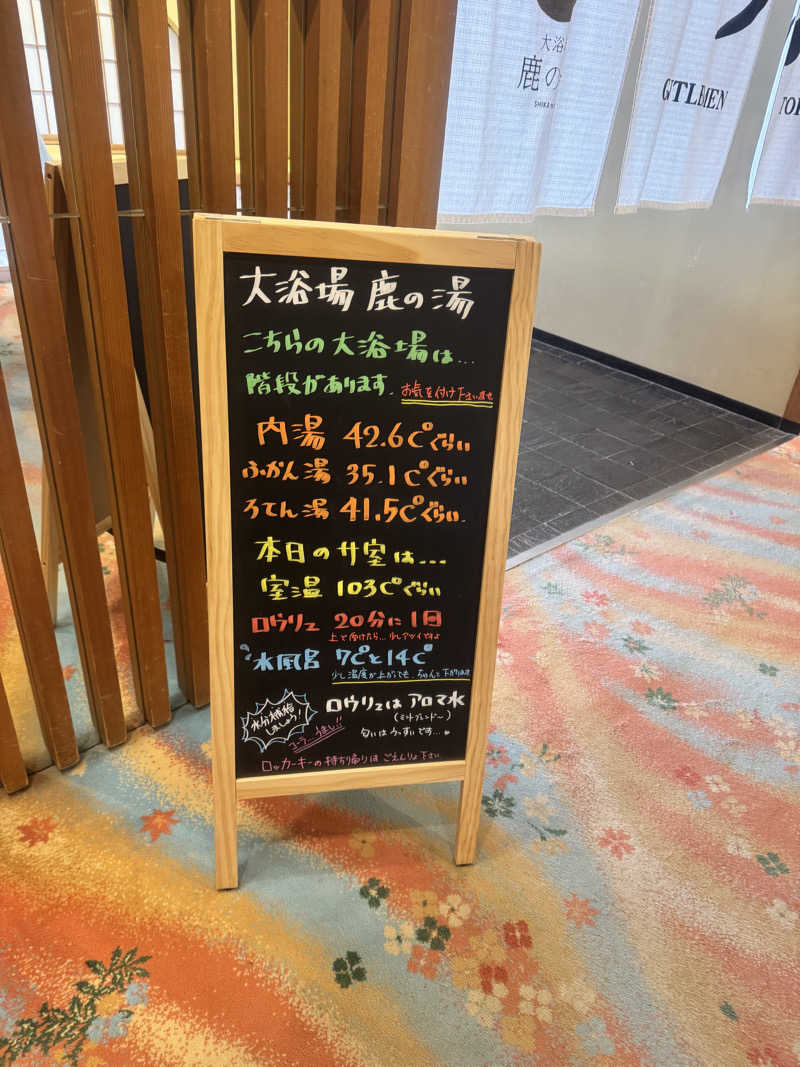 大浴
鹿の
SHIKA
GENTLEMEN
大浴場 鹿の湯
こちらの大浴場は...
階段があります. お気を付け下さいませ
内湯 42.6℃ぐらい
ふかん湯 35.1℃ぐらい
ろてん湯 41.5℃ぐらい.
本日のサ室は...
室温 103℃ぐらい
ロウリュ 20分に1回
上で受けたら...少しアツイですよ
水風呂 7℃と14℃
少し温度が上がっても.ちゃんと下がります
ロウリュは アロマ水
(ミントブレンド〜)
匂いはうっすいです...
水分補給
しましょう!
コーラ...うまし!!
ロッカーキーの持ち帰りは ごえんりょ下さい